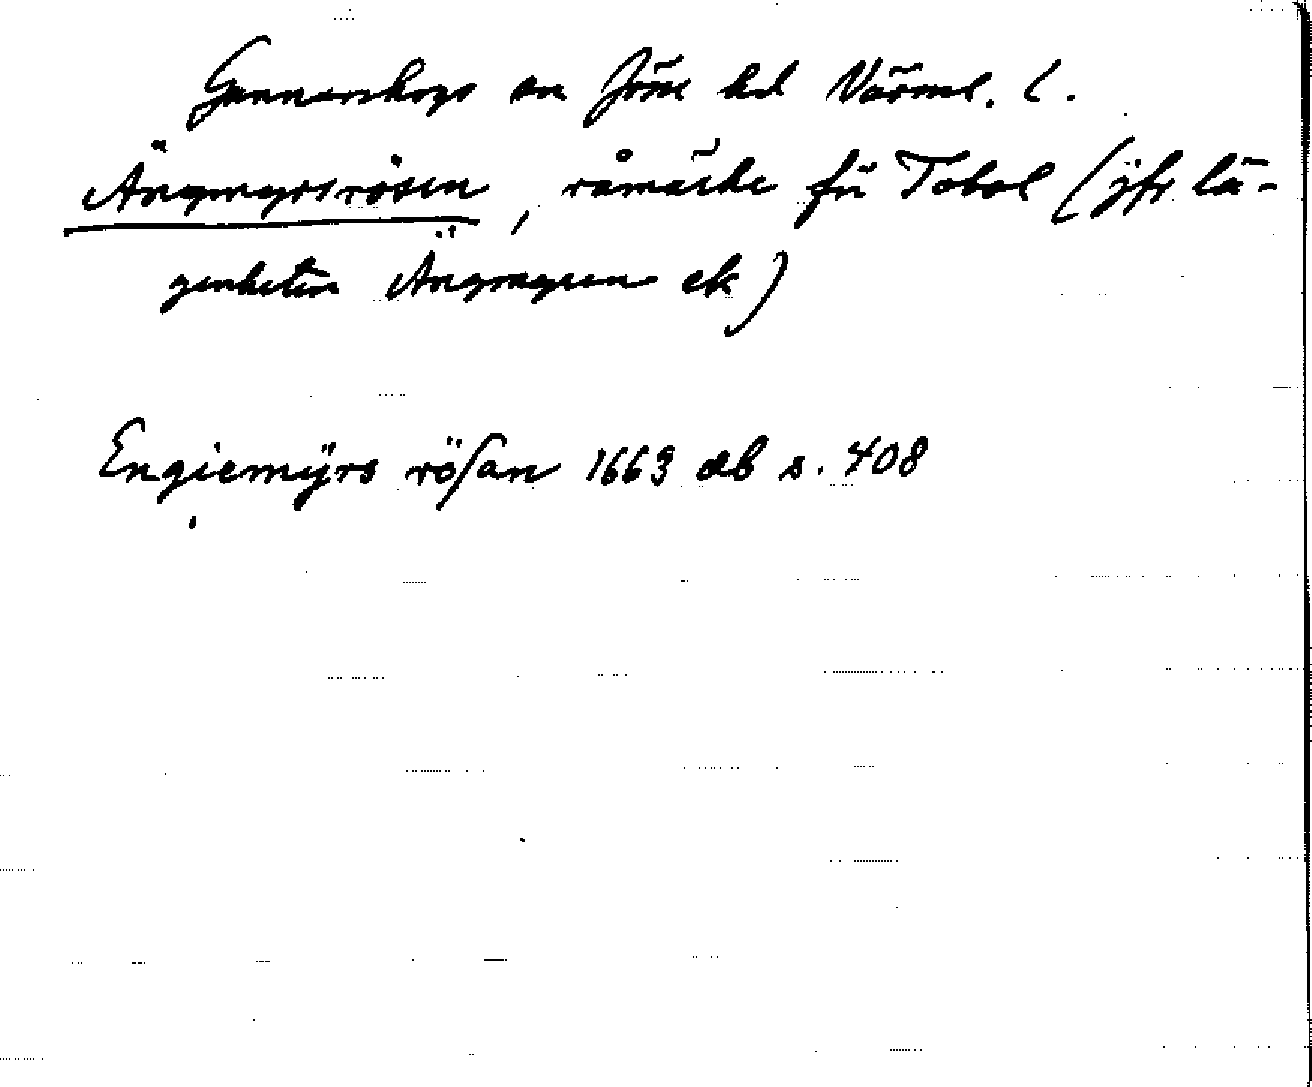 Gunnarskogs sn Jösse hd Värml. l.
Ängmyrsrösen, råmärke för Tobol (jfr lä-
genheten Ängmyren ek)
Engiemÿrs rösan 1663 db s. 408